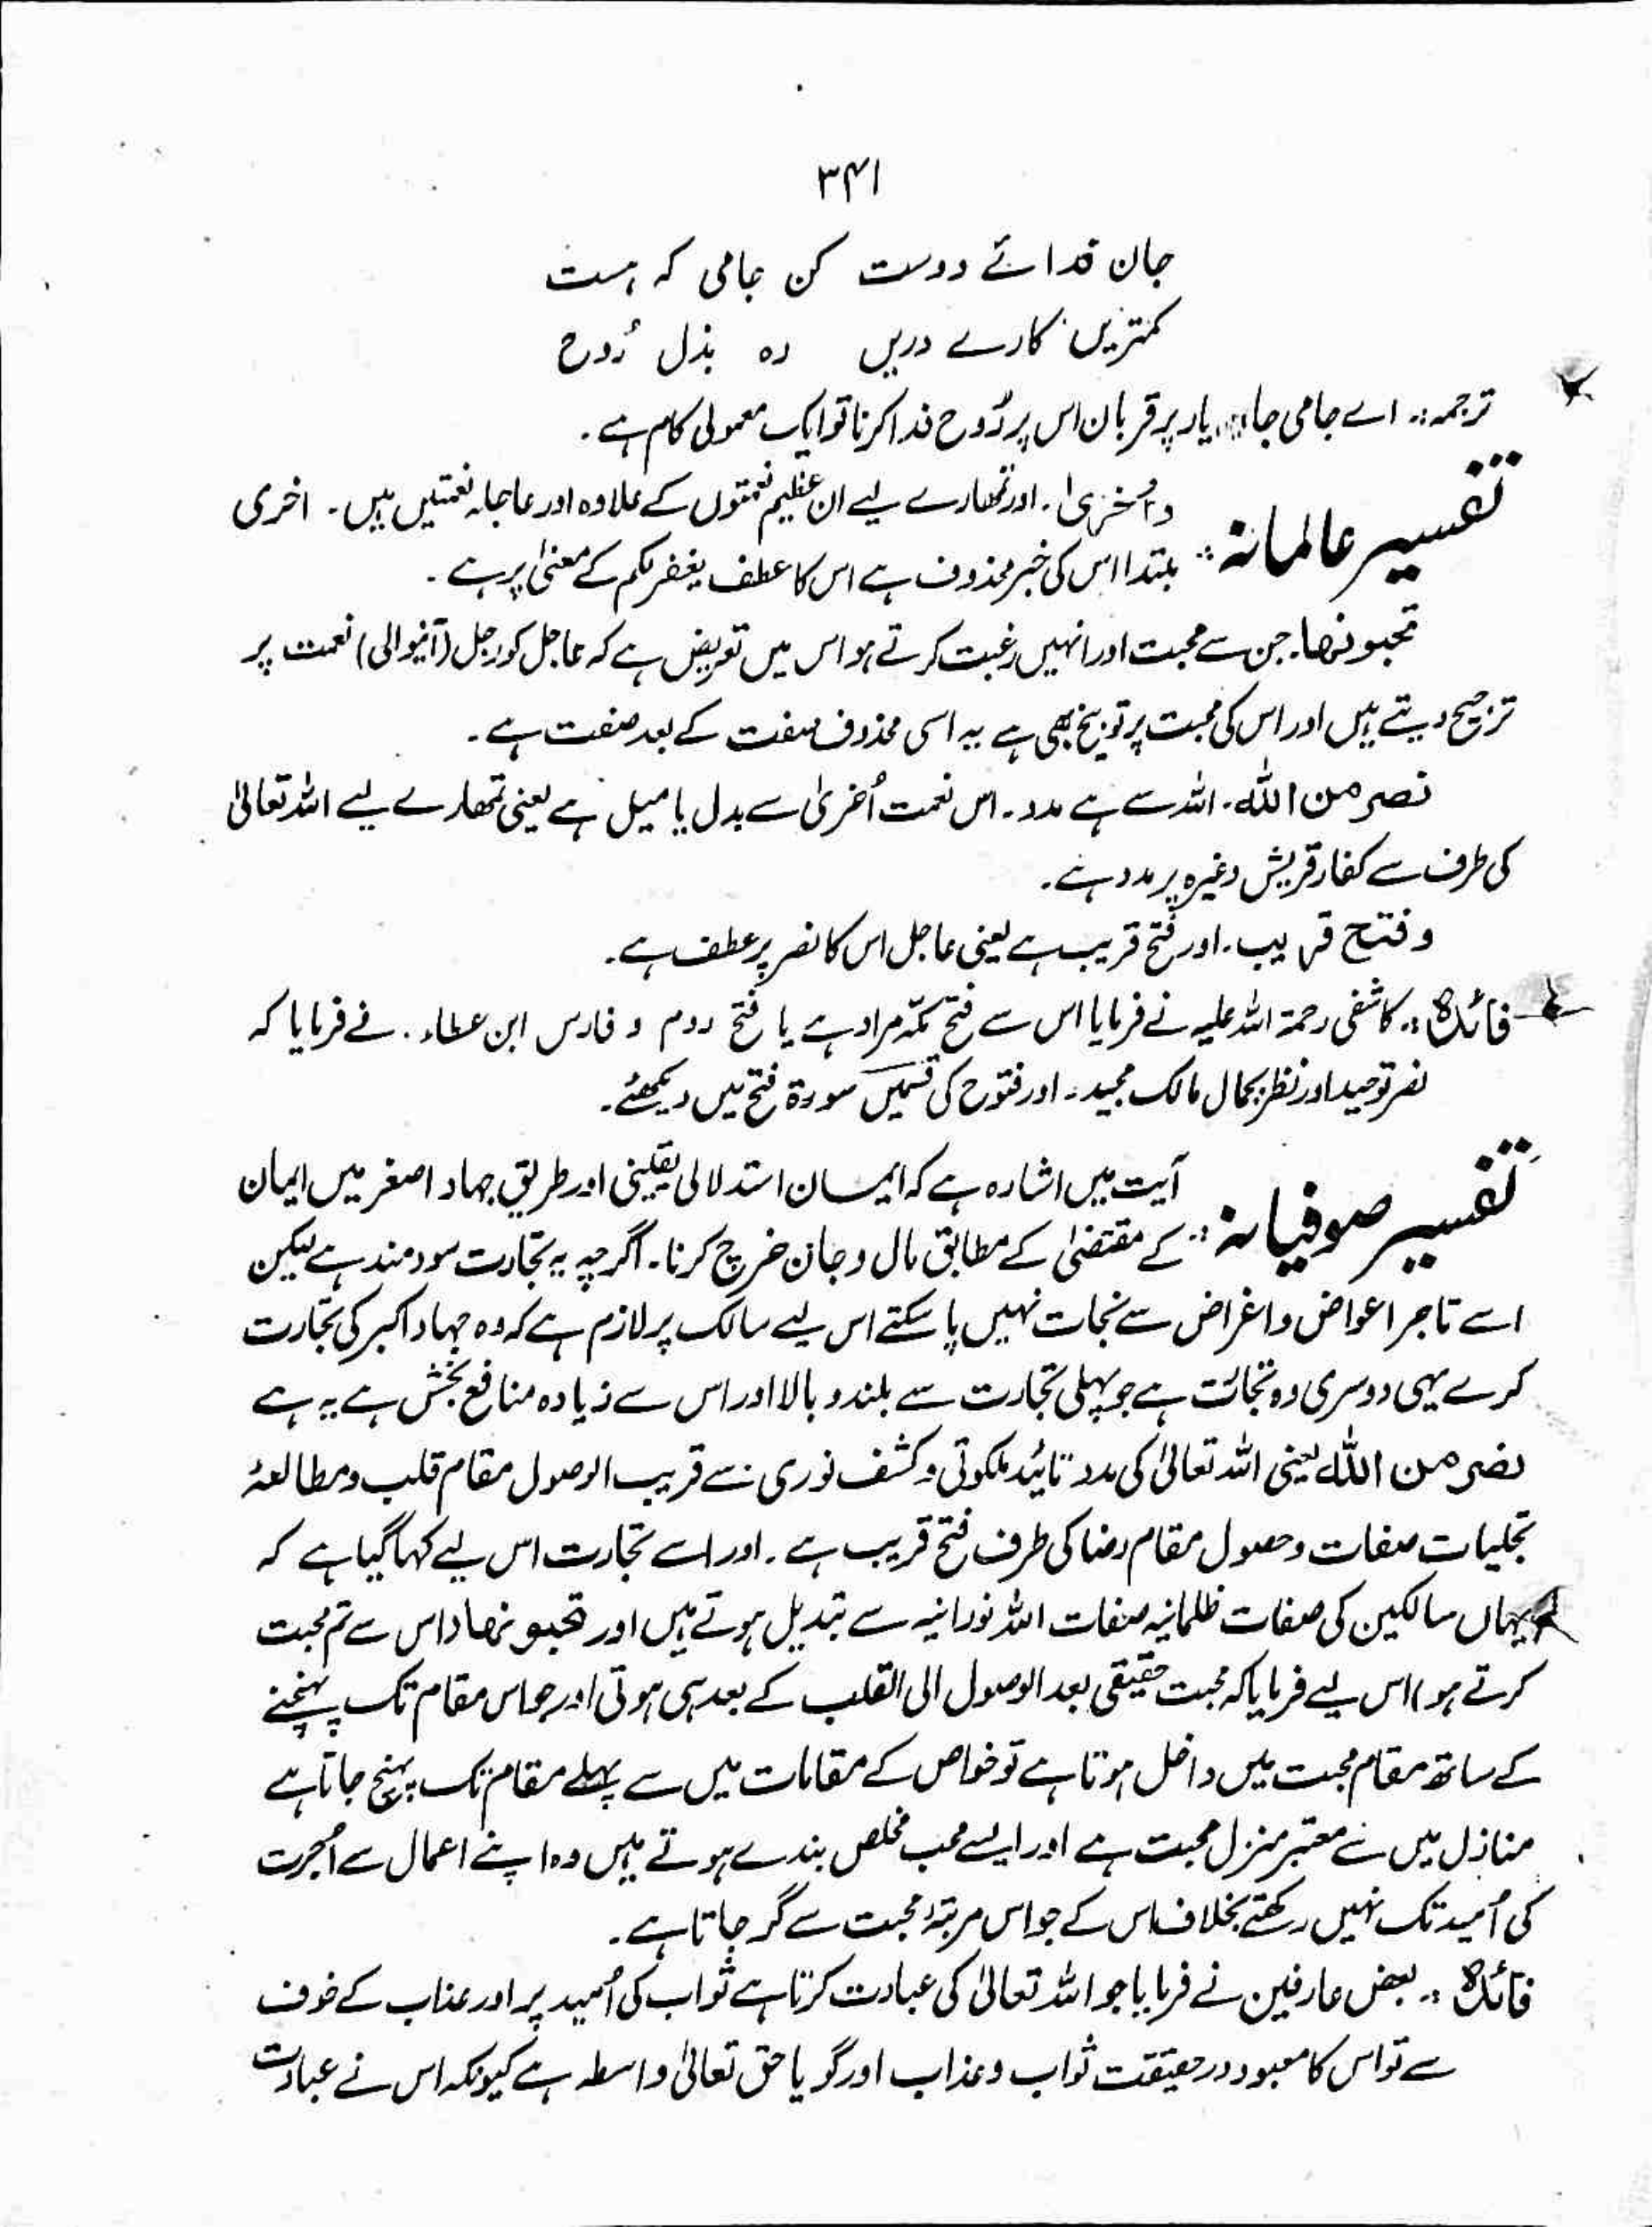 ۳۴۱
جان فدائے دوست کن جامی کہ ہست
کمتریں کارے دریں رہ بذل رُوح
ترجمہ:۔ اے جامی جان یار پر قربان اس پر رُوح فدا کرنا تو ایک معمولی کام ہے۔
تفسیر عالمانہ:۔ واُخریٰ۔ اور تمھارے لیے ان عظیم نعمتوں کے علاوہ اور عاجلہ نعمتیں ہیں۔ اخری
مبتدا اس کی خبر محذوف ہے اس کا عطف یغفرلکم کے معنیٰ پر ہے۔
تحبونھا۔ جن سے محبت اور انہیں رغبت کرتے ہو اس میں تعریض ہے کہ عاجل کو رجل (آنیوالی) نعمت پر
ترجیح دیتے ہیں اور اس کی محبت پر توبیخ بھی ہے یہ اسی محذوف صفت کے بعد صفت ہے۔
نصر من اللّٰہ۔ اللہ سے ہے مدد۔ اس نعمت اُخریٰ سے بدل یا میل ہے یعنی تمھارے لیے اللہ تعالیٰ
کی طرف سے کفار قریش وغیرہ پر مدد ہے۔
وفتح قریب۔ اور فتح قریب ہے یعنی عاجل اس کا نصر پر عطف ہے۔
فائدہ:۔ کاشفی رحمۃ اللہ علیہ نے فرمایا اس سے فتح مکّہ مراد ہے یا فتح روم و فارس ابن عطاء۔ نے فرمایا کہ
نصر توحید اور نظر بجمال مالک مجید۔ اور فتوح کی قسمیں سورۃ فتح میں دیکھئے۔
تفسیر صوفیانہ:۔ آیت میں اشارہ ہے کہ ایمان استدلالی یقینی اور طریق جہاد اصغر میں ایمان
کے مقتضیٰ کے مطابق مال و جان خرچ کرنا۔ اگرچہ یہ تجارت سودمند ہے لیکن
اسے تاجر اعواض واغراض سے نجات نہیں پا سکتے اس لیے سالک پر لازم ہے کہ وہ جہاد اکبر کی تجارت
کرے یہی دوسری وہ تجارت ہے جو پہلی تجارت سے بلند و بالا اور اس سے زیادہ منافع بخش ہے یہ ہے
نصر من اللّٰہ یعنی اللہ تعالیٰ کی مدد تائید ملکوتی و کشف نوری سے قریب الوصول مقام قلب و مطالعۂ
تجلیات صفات و حصول مقام رضا کی طرف فتح قریب ہے۔ اور اسے تجارت اس لیے کہا گیا ہے کہ
یہاں سالکین کی صفات ظلمانیہ صفات اللہ نورانیہ سے تبدیل ہوتے ہیں اور تحبونھا (اس سے تم محبت
کرتے ہو) اس لیے فرمایا کہ محبت حقیقی بعد الوصول الی القلب کے بعد ہی ہوتی اور جو اس مقام تک پہنچنے
کے ساتھ مقام محبت میں داخل ہوتا ہے تو خواص کے مقامات میں سے پہلے مقام تک پہنچ جاتا ہے
منازل میں سے معتبر منزل محبت ہے اور ایسے محب مخلص بندے ہوتے ہیں وہ اپنے اعمال سے اُجرت
کی اُمید تک نہیں رکھتے بخلاف اس کے جو اس مرتبۂ محبت سے گر جاتا ہے۔
فائدہ:۔ بعض عارفین نے فرمایا جو اللہ تعالیٰ کی عبادت کرتا ہے ثواب کی اُمید پر اور عذاب کے خوف
سے تو اس کا معبود درحقیقت ثواب و عذاب اور گویا حق تعالیٰ واسطہ ہے کیونکہ اس نے عبادت